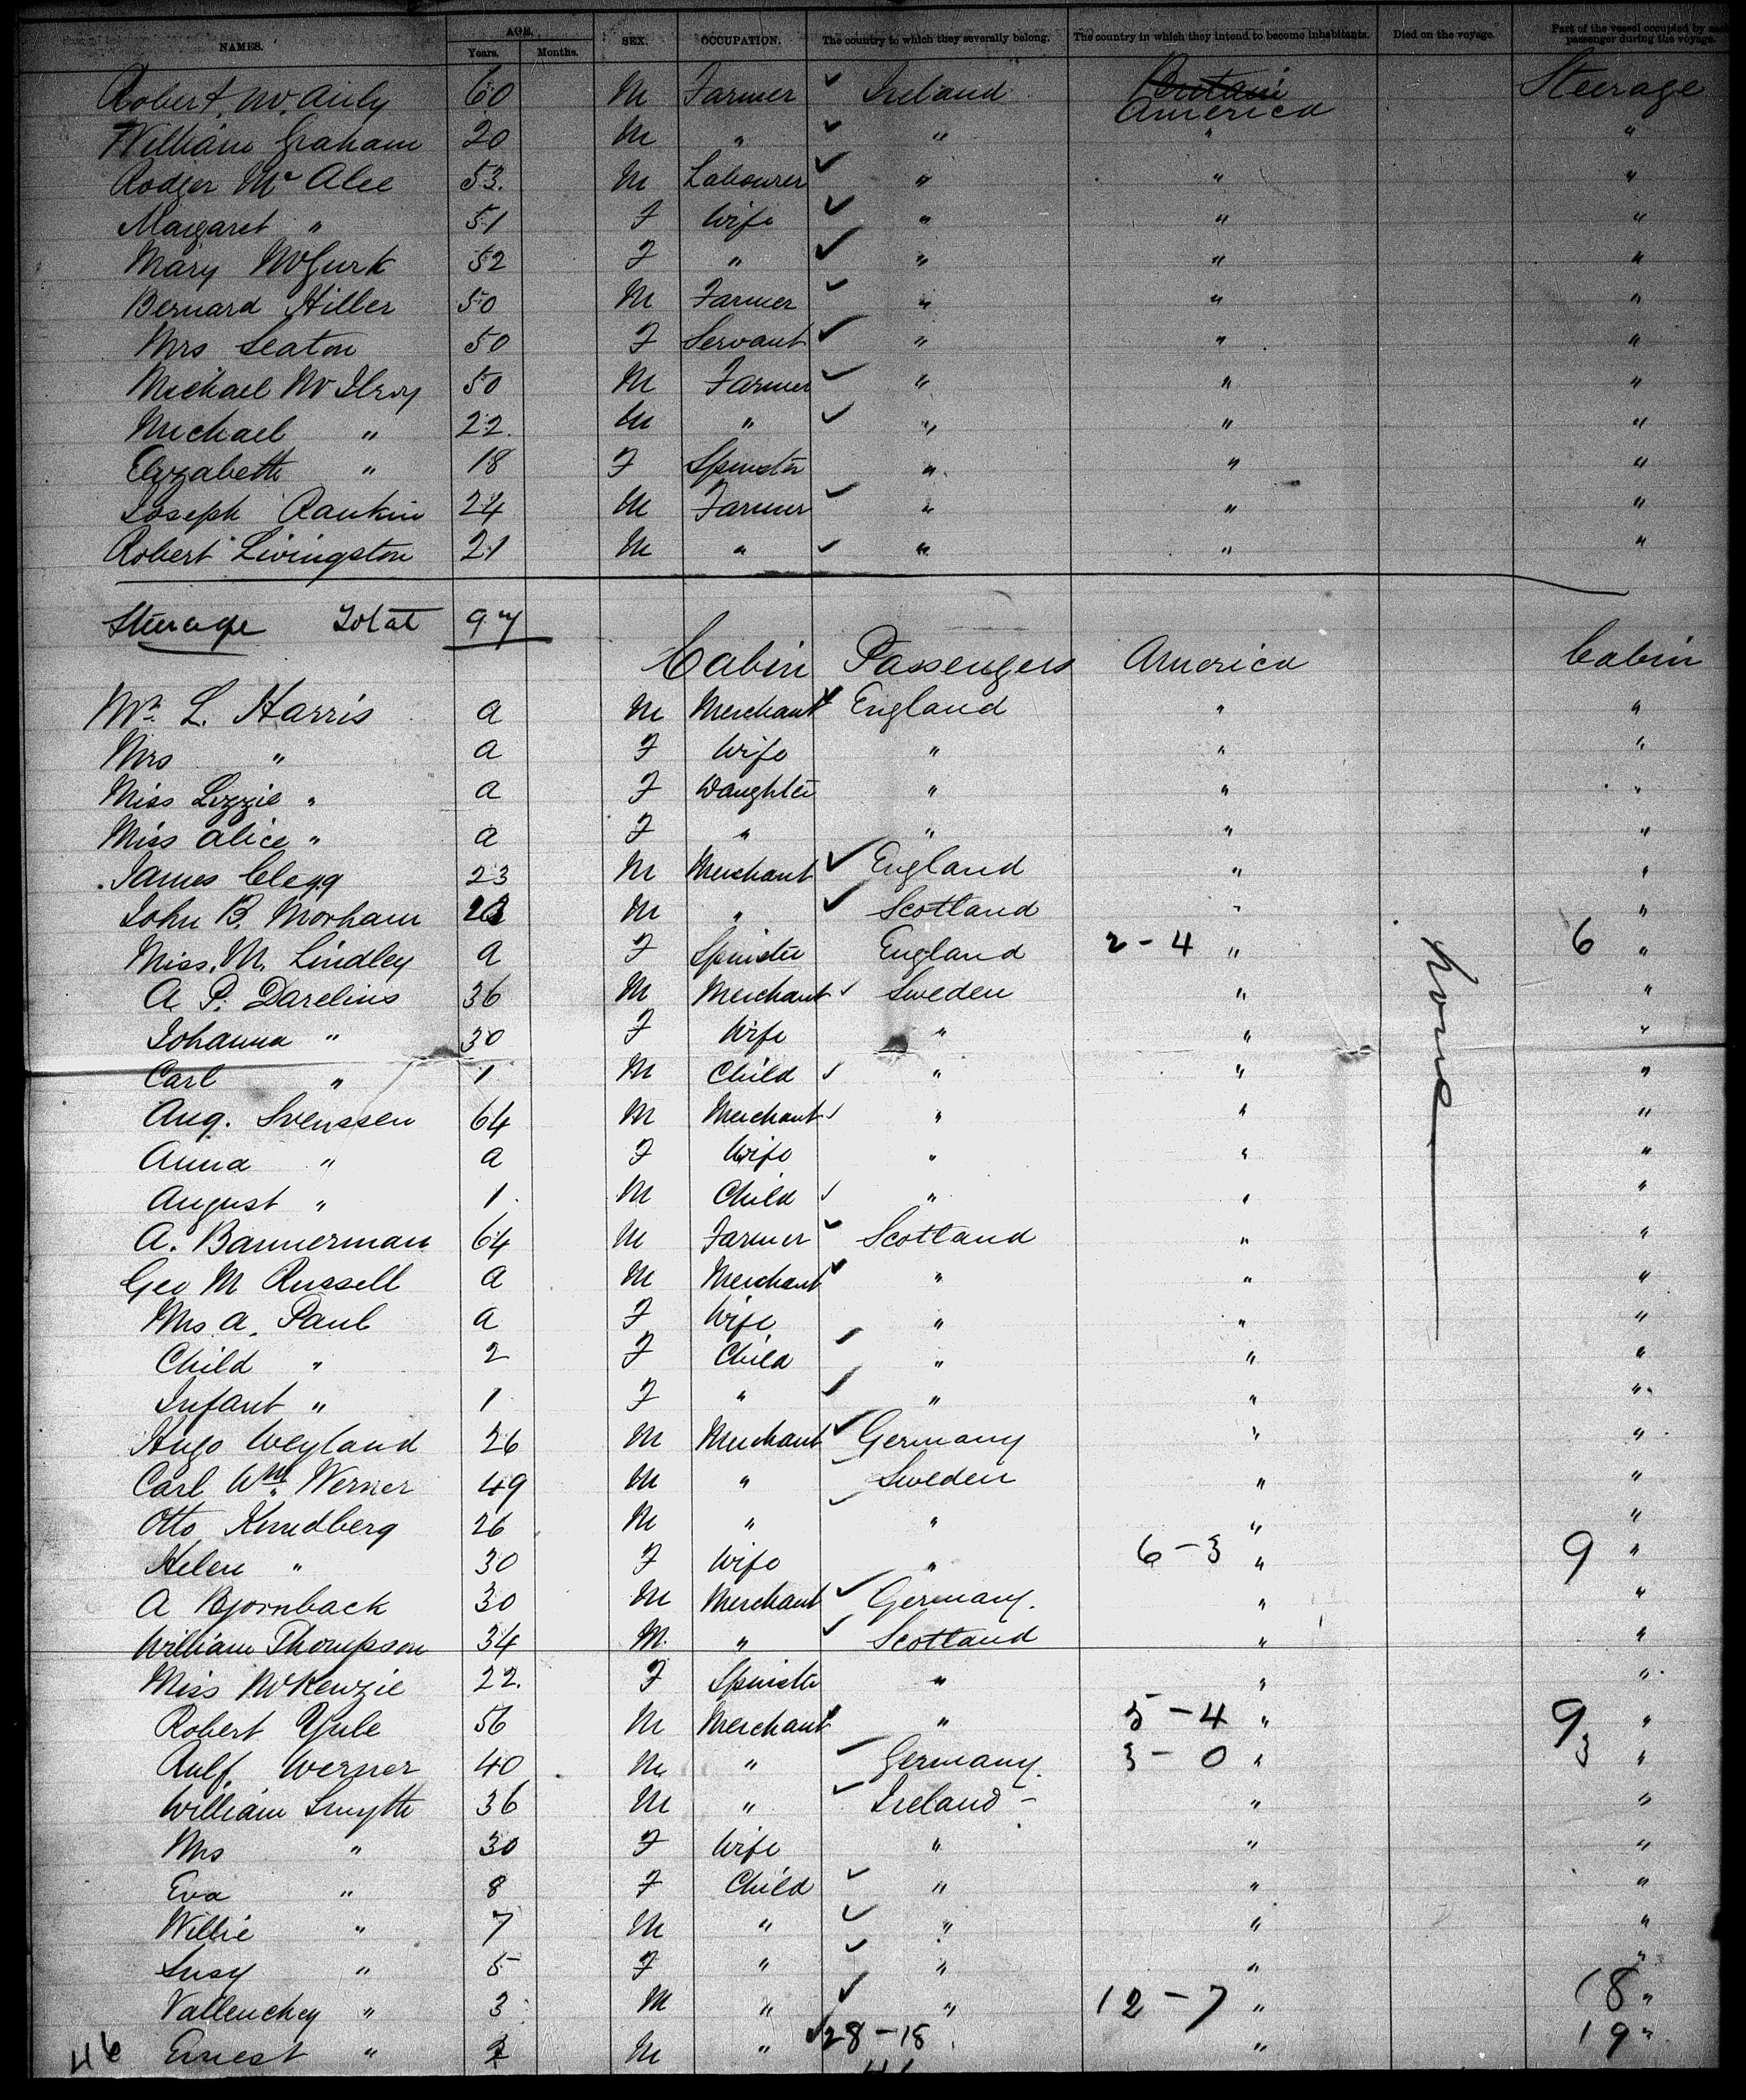 NAMES. AGE. Years. Months. SEX. OCCUPATION. The country to which they severally belong. The country in which they intend to become inhabitants. Died on the voyage. Part of the vessel occupied by each passenger during the voyage.
Robert McAuly 60 M Farmer ✓ Ireland Britain America Steerage
William Graham 20 M " ✓ " " "
Rodger Mc Alee 53. M Labourer ✓ " " "
Margaret " 51 F Wife ✓ " " "
Mary McGurk 52 F " ✓ " " "
Bernard Hiller 50 M Farmer ✓ " " "
Mrs Seaton 50 F Servant ✓ " " "
Michael McIlroy 50 M Farmer ✓ " " "
Michael " 22. M " ✓ " " "
Elizabeth " 18 F Spinster " " "
Joseph Rankin 24 M Farmer ✓ " " "
Robert Livingston 21 M " ✓ " " "
Steerage Total 97
Cabin Passengers America Cabin
Mr. L. Harris a M Merchant ✓ England " "
Mrs " a F Wife " " "
Miss Lizzie " a F Daughter " " "
Miss Alice " a F " " " "
James Clegg 23 M Merchant ✓ England " "
John B. Morham M " ✓ Scotland " "
Miss. M. Lindley a F Spinster England 2-4 " 6 "
A. P. Darelius 36 M Merchant ✓ Sweden " "
Johanna " 30 F Wife " " "
Carl " 1 M Child ✓ " " "
Aug. Svenssen 64 M Merchant ✓ " " "
Anna " a F Wife " " "
August " 1 M Child ✓ " " "
A. Bannerman 64 M Farmer ✓ Scotland " "
Geo M Russell a M Merchant ✓ " " "
Mrs A. Paul a F Wife " " "
Child " 2 F Child ✓ " " "
Infant " 1 F " ✓ " " "
Hugo Weyland 26 M Merchant ✓ Germany " "
Carl Wm. Werner 49 M " ✓ Sweden " "
Otto Knudberg 26 M " ✓ " " "
Helen " 30 F Wife " 6-3 " 9 "
A Bjornback 30 M Merchant ✓ Germany. " "
William Thompson 34 M. " ✓ Scotland " "
Miss McKenzie 22. F Spinster " " "
Robert Yule 56 M Merchant ✓ " 5-4 " 9 "
Rulf Werner 40 M " ✓ Germany. 3-0 " 3 "
William Smyth 36 M " ✓ Ireland - " "
Mrs " 30 F Wife " " "
Eva " 8 F Child ✓ " " "
Willie " 7 M " ✓ " " "
Susy " 5 F " ✓ " " "
Vallenchey " 3 M " ✓ " 12-7 " 18 "
46 Ernest " M " ✓ 28-18 " 19 "
None